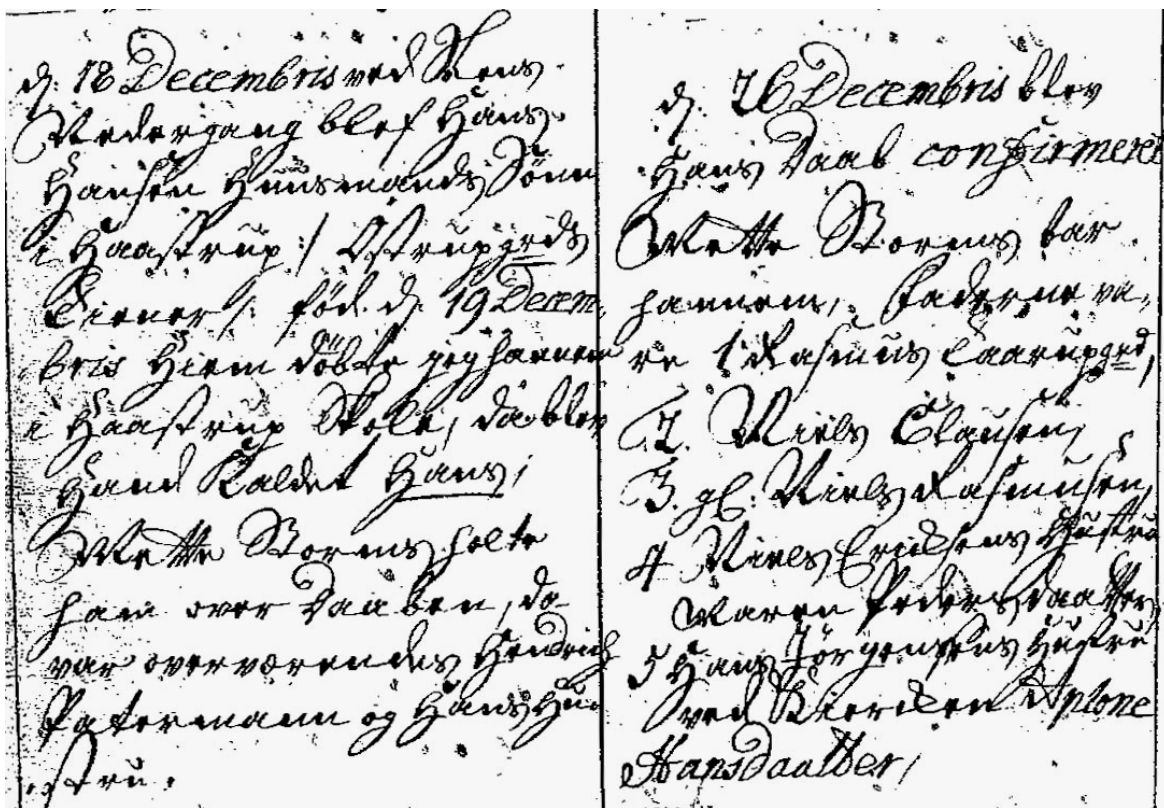 d: 18 Decembris ved Soens
Nedergang blef Hans
Hansen Huusmands Sønn
i Haastrup :/ Østrupgrds
Tiener /: föd. d: 19 Decem-
bris Hiem döbte jeg hannem
i Haastrup Skole, da blev
Hand Kaldet Hans,
Mette Storms holte
ham over Daaben, da
var overværendes Hendrich
Patermann og Hans Hu-
stru.
d: 26 Decembris blev
Hans Daab confirmeret
Mette Storms bar
hannem, Faderne va-
re 1 Rasmus Caarupgrd,
2. Niels Clausen,
3. gl: Niels Rasmusen,
4 Niels Ericksens Hustru
Maren Peders daatter
5 Hans Jörgensens Hustru
ved Kiercken Aplone
Hansdaatter,